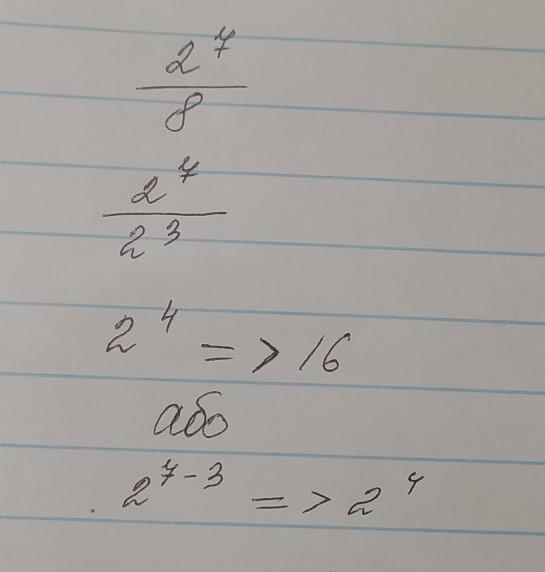 2^7
8
2^7
2^3
2^4 => 16
або
2^7-3 => 2^4